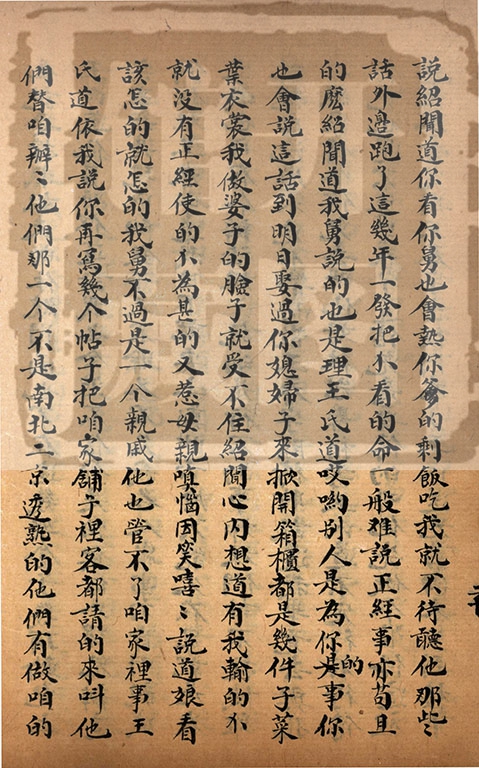 說紹聞道你看你舅也會熱你爹的剩飯吃我就不待聽他那些〻
話外邊跑了這幾年一發把不看的命一般难說正經事亦苟且
的麽紹聞道我舅說的也是理王氏道哎喲别人是為你的是事你
也會說這話到明日娶過你媳婦子來掀開箱櫃都是幾件子菜
葉衣裳我做婆子的臉子就受不住紹聞心内想道有我輸的不
就没有正經使的不為甚的又惹母親嗔惱因笑嘻〻說道娘看
該怎的就怎的我舅不過是一个親戚他也管不了咱家裡事王
氏道依我說你再寫幾个帖子把咱家舖子裡客都請的來呌他
們替咱辦〻他們那一个不是南北二京透熟的他們有做咱的